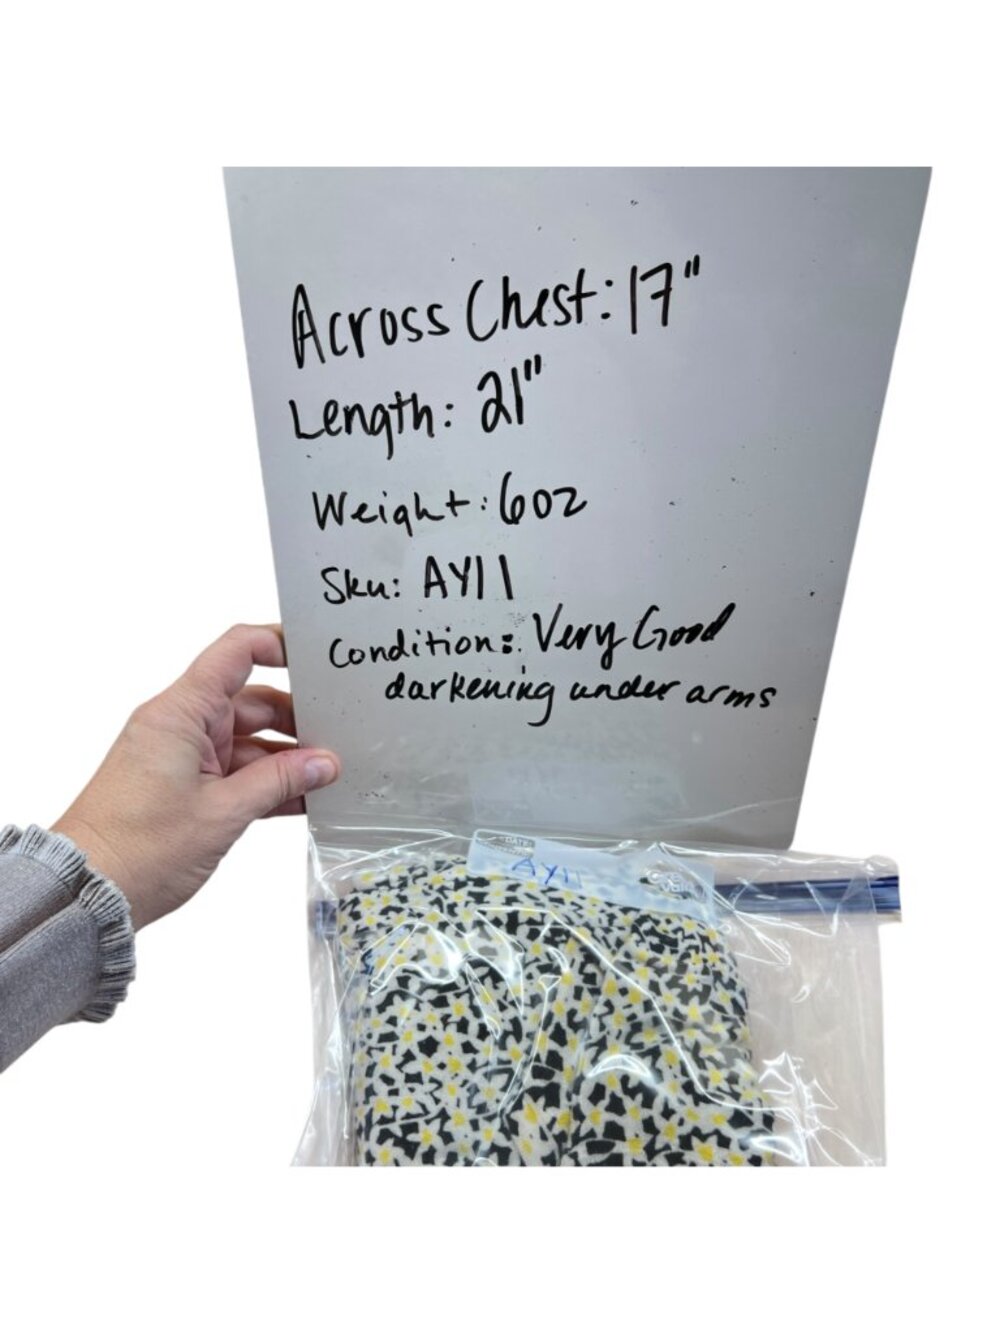 Across Chest: 17"
Length: 21"
Weight: 6oz
Sku: AY11
Condition: Very Good
darkening under arms
DATE:
AY11